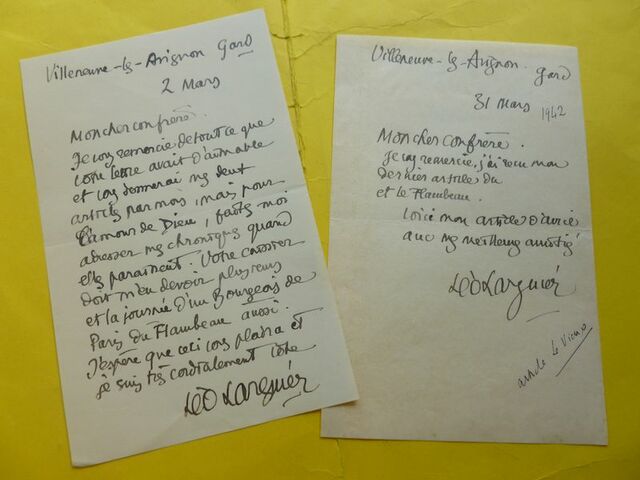 Villeneuve-lès-Avignon Gard
2 Mars
Mon cher confrère.
Je vous remercie de tout ce que
votre lettre avait d'aimable
et vous donnerai mes deux
articles par mois, mais pour
l'amour de Dieu, faites moi
adresser mes chroniques quand
elles paraissent. Votre caissier
doit m'en devoir plusieurs
et la journée d'un Bourgeois de
Paris du Flambeau aussi.
J'espère que ceci vous plaira et
je suis très cordialement votre
Léo Larguier
Villeneuve-lès-Avignon. Gard
31 Mars 1942
Mon cher confrère.
Je vous remercie, j'ai reçu mon
dernier article du
et le Flambeau.
Voici mon article d'avril
avec mes meilleures amitiés
Léo Larguier
article le Vieux